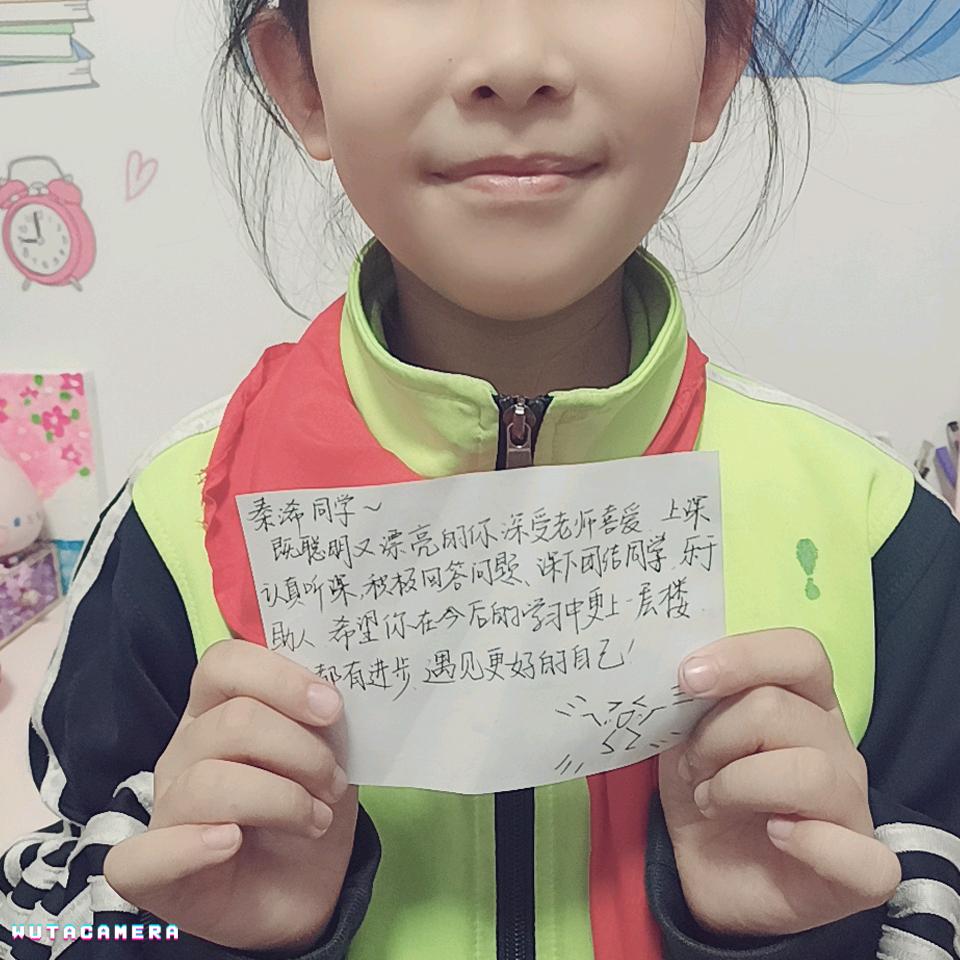 秦浠同学~
既聪明又漂亮的你深受老师喜爱 上课
认真听课、积极回答问题、课下团结同学、乐于
助人 希望你在今后的学习中更上一层楼
都有进步 遇见更好的自己!
WUTACAMERA